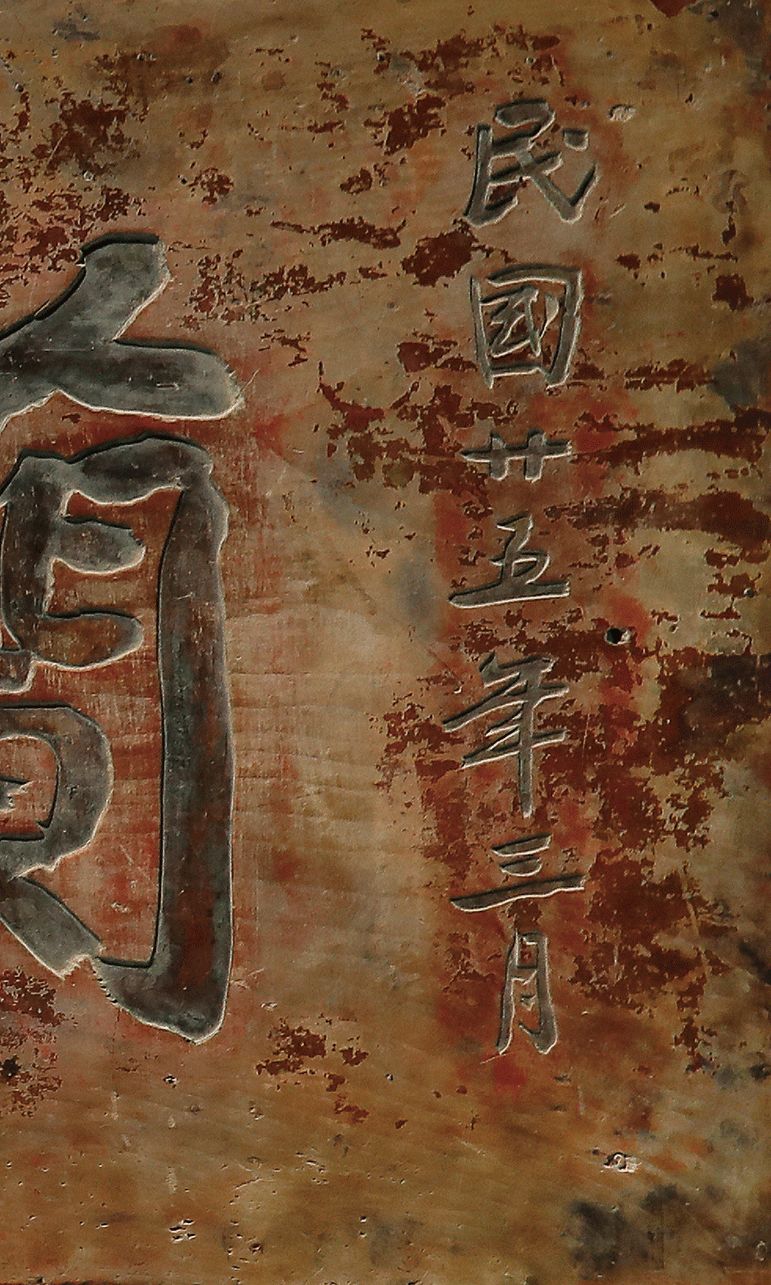 民國廿五年三月